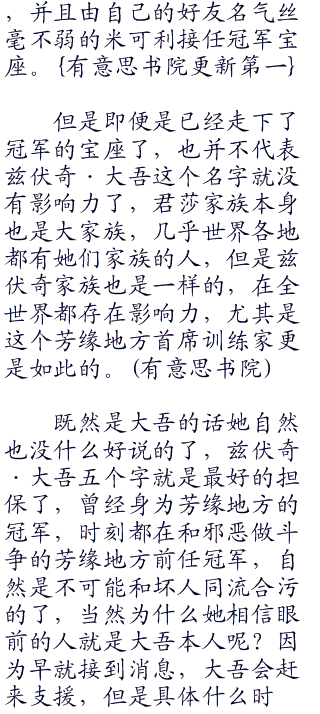 ，并且由自己的好友名气丝
毫不弱的米可利接任冠军宝
座。{有意思书院更新第一}
但是即便是已经走下了
冠军的宝座了，也并不代表
兹伏奇·大吾这个名字就没
有影响力了，君莎家族本身
也是大家族，几乎世界各地
都有她们家族的人，但是兹
伏奇家族也是一样的，在全
世界都存在影响力，尤其是
这个芳缘地方首席训练家更
是如此的。(有意思书院)
既然是大吾的话她自然
也没什么好说的了，兹伏奇
·大吾五个字就是最好的担
保了，曾经身为芳缘地方的
冠军，时刻都在和邪恶做斗
争的芳缘地方前任冠军，自
然是不可能和坏人同流合污
的了，当然为什么她相信眼
前的人就是大吾本人呢？因
为早就接到消息，大吾会赶
来支援，但是具体什么时